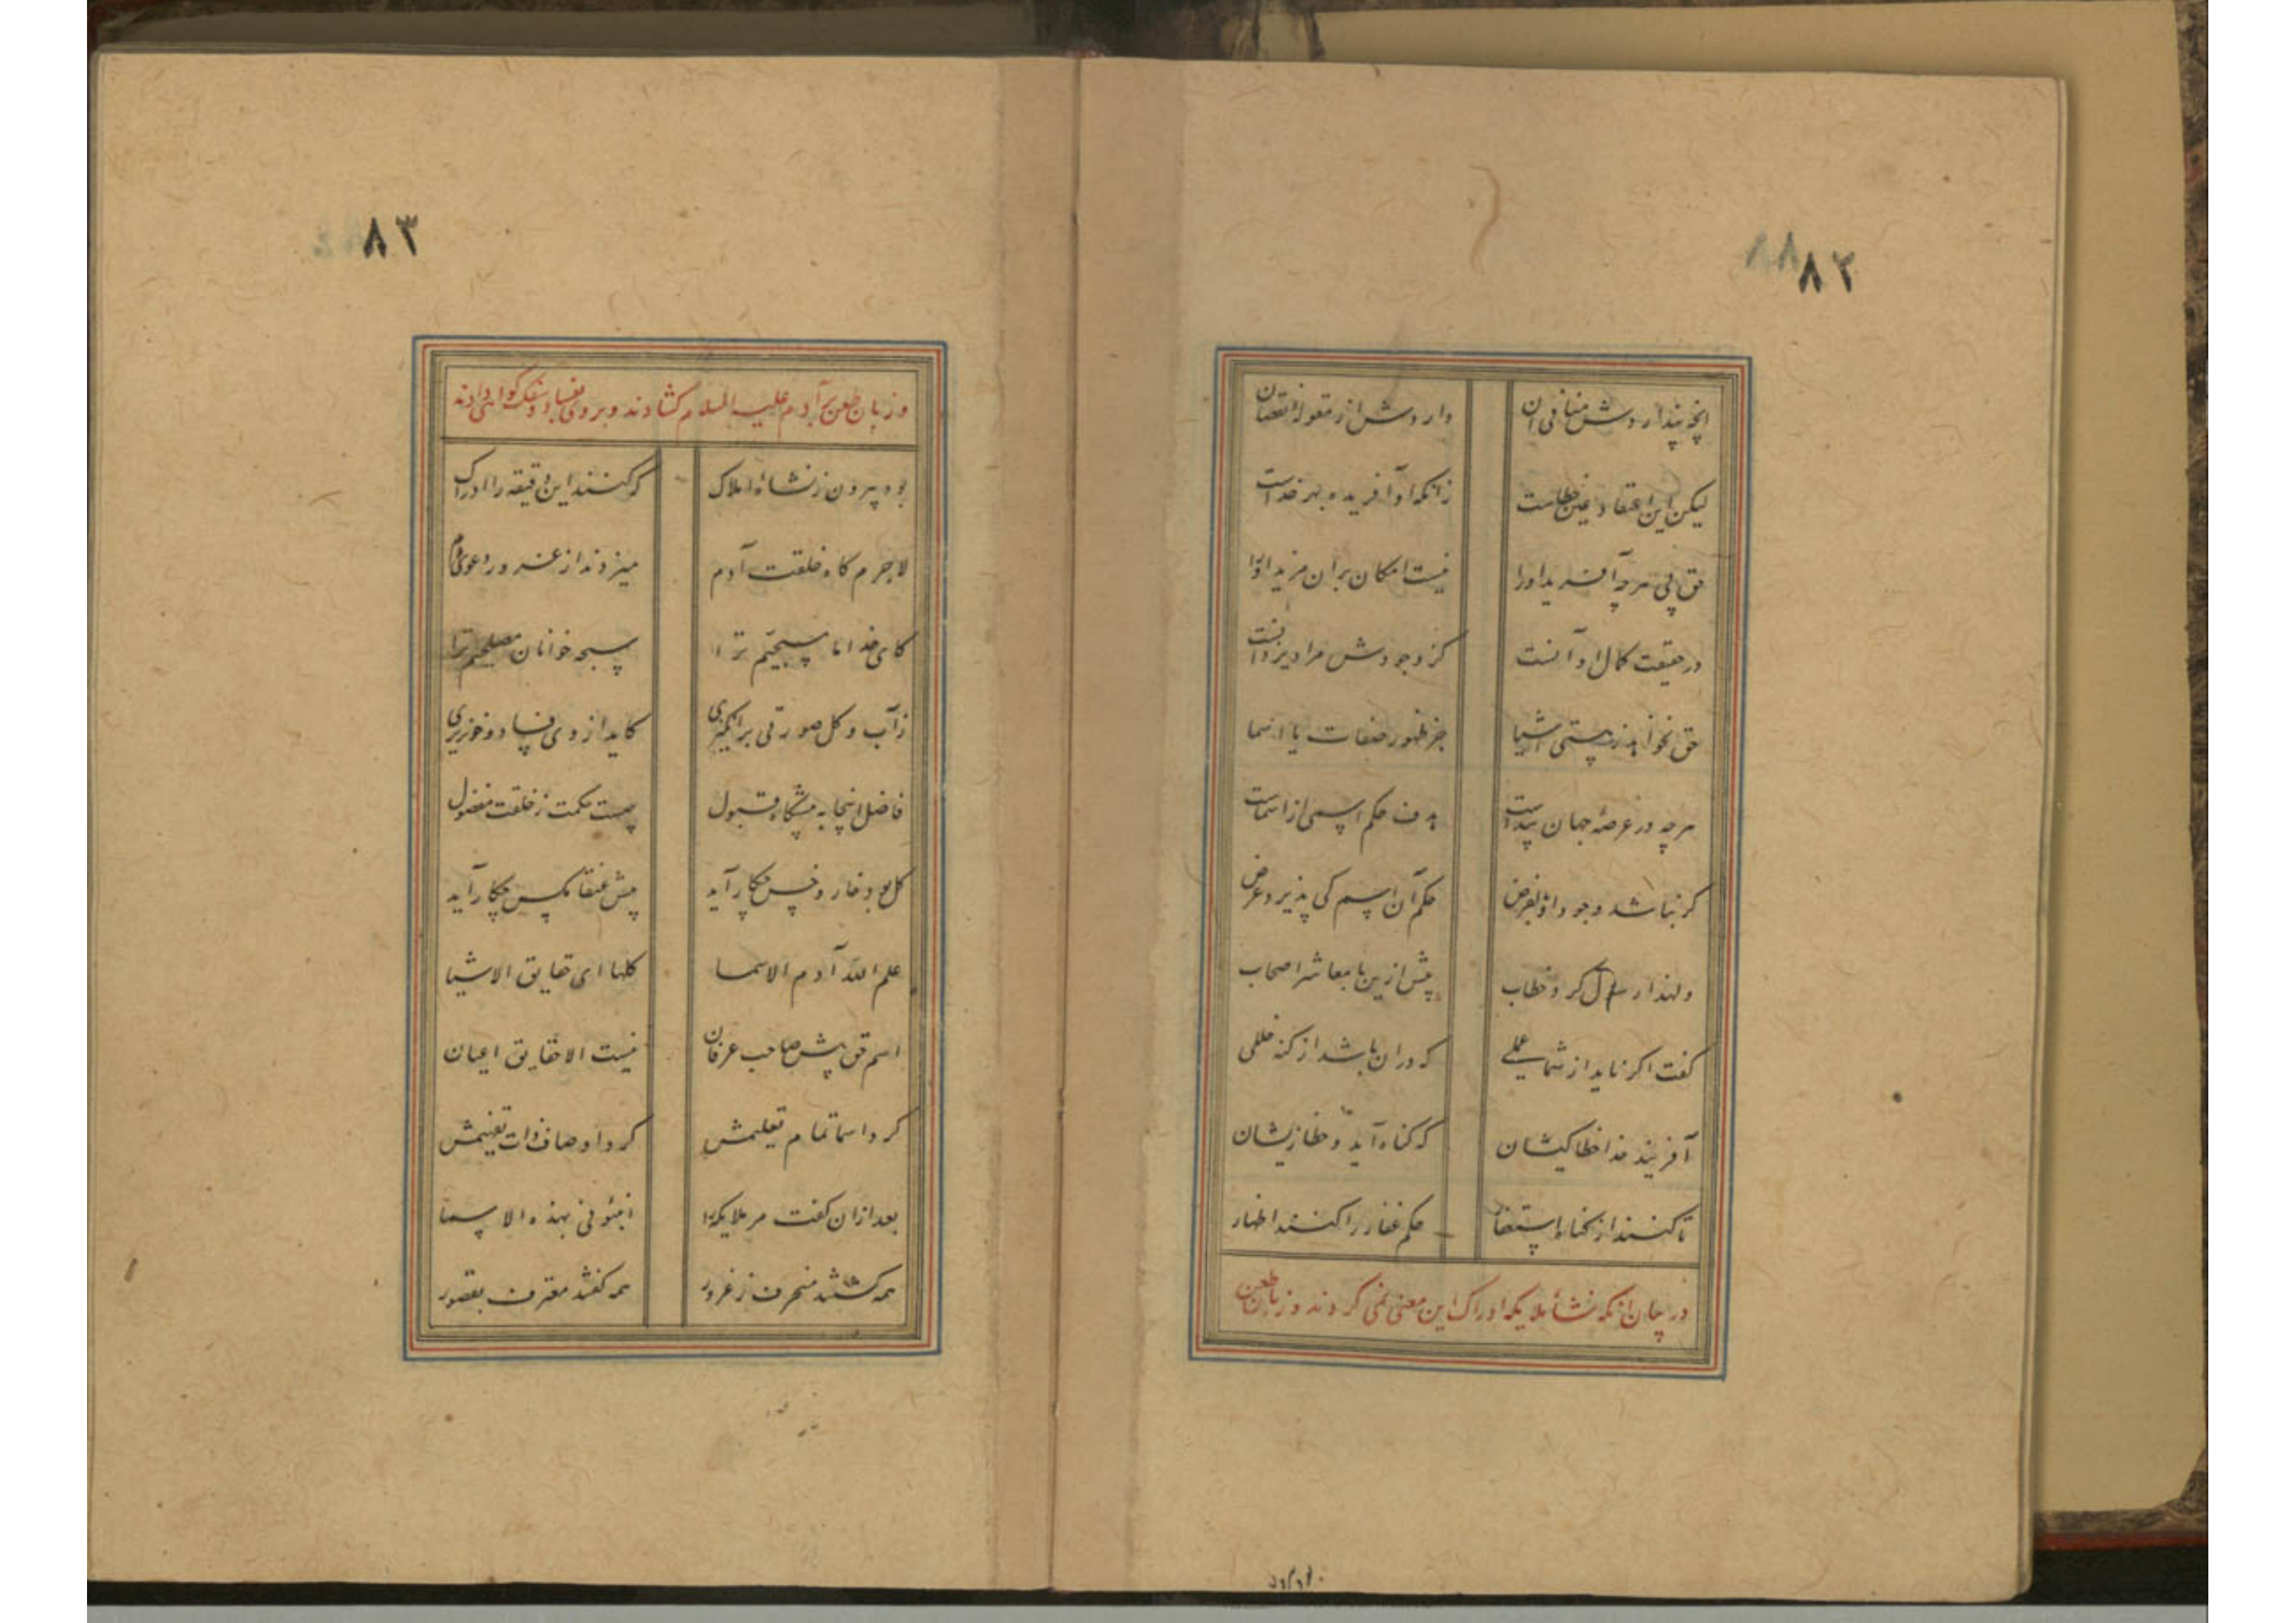 ٨٢
انچه پنداردش منافی آن داردش از مقوله نقصان
لیکن این اعتقاد عین خطاست زانکه او آفریده بهر خداست
حق پی هر چه آفرید اورا نیست امکان بر آن مزید اورا
در حقیقت کمال او آنست کز وجودش مراد یزدانست
حق نخواهد ز هستی اشیا جز ظهور صفات یا اسما
هر چه در عرصهٔ جهان پیداست هدف حکم اسمی از اسماست
گر نباشد وجود او بالفرض حکم آن اسم کی پذیرد عرض
ولهذا رسول کرد خطاب پیش ازین با معاشر اصحاب
گفت اگر ناید از شما عملی که دران باشد از گنه خللی
آفریند خدا خطاکیشان که گناه آید و خطا زیشان
تا کنند از گناه استغفار حکم غفار را کنند اظهار
در بیان انکه نشأ ملایکه ادراک این معنی نمی کردند و زبان طعن
٨٣
و زبان طعن بر آدم علیه السلام کشادند و بر وی بفساد و سفک گواهی دادند
بود بیرون ز نشاهٔ املاک که کنند این دقیقه را ادراک
لاجرم گاه خلقت آدم میزدند از غرور دعوی دم
کای خدا ما مسبحیم ترا سبحه خوانان مصلحیم ترا
ز آب و گل صورتی برانگیزی کاید از وی فساد و خونریزی
فاضل اینجا به پیشگاه قبول چیست حکمت ز خلقت مفضول
گل بود خار و خس چکار آید پیش عنقا مگس چکار آید
علم الله آدم الاسما کلها ای حقایق الاشیا
اسم حق پیش صاحب عرفان نیست الا حقایق اعیان
کرد اسما تمام تعلیمش کرد اوصاف ذات تفهیمش
بعد ازان گفت مر ملایکه را انبئونی بهذه الاسما
همه گشتند منحرف ز غرور همه گفتند معترف بقصور